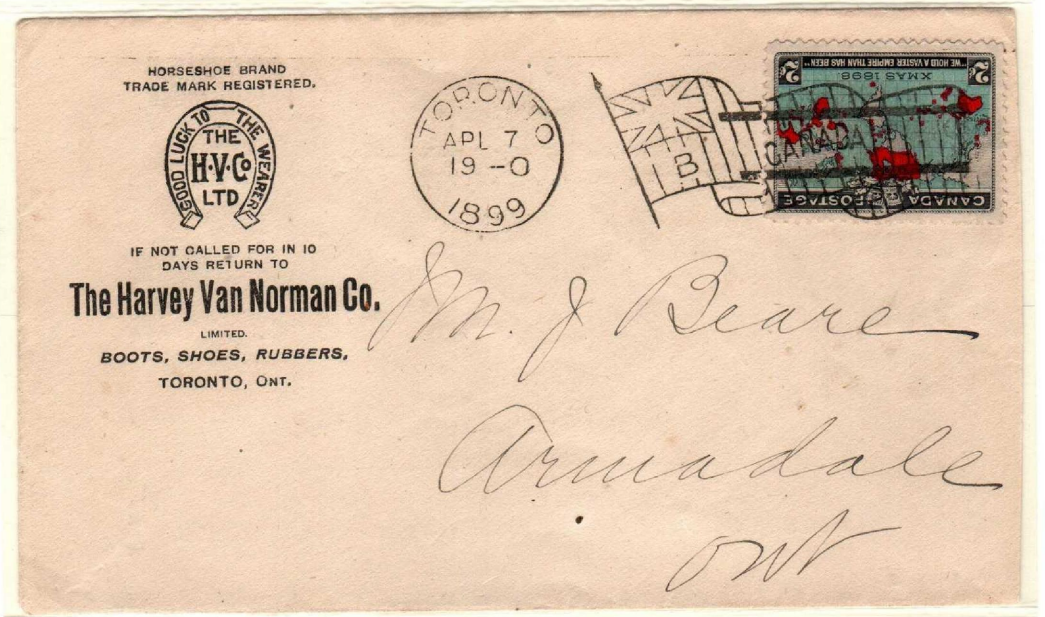 HORSESHOE BRAND
TRADE MARK REGISTERED.
GOOD LUCK TO THE WEARER
THE
H·V·Co
LTD
IF NOT CALLED FOR IN 10
DAYS RETURN TO
The Harvey Van Norman Co.
LIMITED.
BOOTS, SHOES, RUBBERS,
TORONTO, ONT.
TORONTO
APL 7
19--0
1899
B
CANADA
CANADA POSTAGE
XMAS 1898
"WE HOLD A VASTER EMPIRE THAN HAS BEEN"
2c 2c
M. J Beare
Armadale
Ont